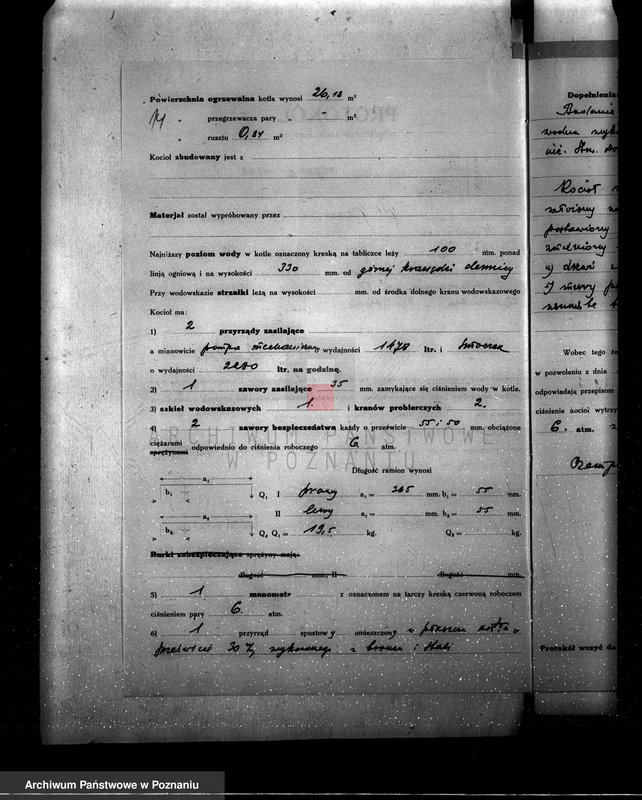 Powierzchnia ogrzewalna kotła wynosi 26,13 m²
" przegrzewacza pary - m²
" rusztu 0,84 m²
Kocioł zbudowany jest z
Materjał został wypróbowany przez
Najniższy poziom wody w kotle oznaczony kreską na tabliczce leży 100 mm. ponad
linją ogniową i na wysokości 330 mm. od górnej krawędzi
Przy wodowskazie strzałki leżą na wysokości mm. od środka dolnego kranu wodowskazowego
Kocioł ma:
1) 2 przyrządy zasilające
a mianowicie pompa mechaniczna o wydajności 1478 ltr. i smoczek
o wydajności 2280 ltr. na godzinę.
2) 1 zawory zasilające 35 mm. zamykające się ciśnieniem wody w kotle.
3) szkieł wodowskazowych 1. i kranów probierczych 2.
4) 2 zawory bezpieczeństwa każdy o prześwicie 55 i 50 mm. obciążone
ciężarami
sprężynami odpowiednio do ciśnienia roboczego 6 atm.
ARCHIWUM PAŃSTWOWE
W POZNANIU
Długość ramion wynosi
a₁
b₁ Q₁ I prawy a₁ = 365 mm. b₁ = 55 mm.
a₂ II lewy a₂ = mm. b₂ = 55 mm.
b₂ Q₁ = 19,5 kg. Q₂ = kg.
Rurki zabezpieczające sprężyny mają:
długość mm. II długość mm.
5) 1 manometr z oznaczonem na tarczy kreską czerwoną roboczem
ciśnieniem pary 6. atm.
6) 1 przyrząd spustowy umieszczony w kotła o
prześwicie 30 wykonanego z bronzu i stali
Dopełnienia
Badania
wodna
Kocioł
założony
postawiony
Wobec tego że
w pozwoleniu z dnia
odpowiadają przepisom
ciśnienie kocioł wytrzy
6. atm. z
Protokół wszyć do
Archiwum Państwowe w Poznaniu